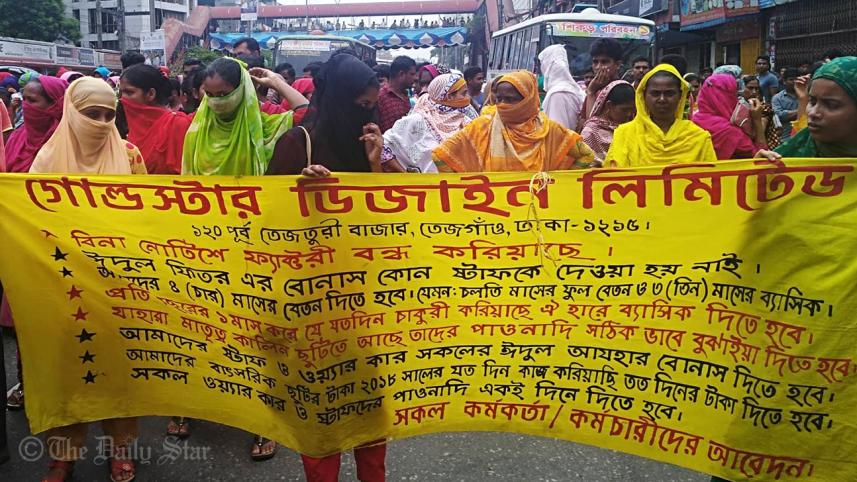 শিকড় পরিবহন
গোল্ডস্টার ডিজাইন লিমিটেড
১২০ পূর্ব তেজতুরী বাজার, তেজগাঁও, ঢাকা-১২১৫।
বিনা নোটিশে ফ্যাক্টরী বন্ধ করিয়াছে।
ঈদুল ফিতর এর বোনাস কোন স্টাফকে দেওয়া হয় নাই।
৪ (চার) মাসের বেতন দিতে হবে। যেমন: চলতি মাসের ফুল বেতন ও ৩ (তিন) মাসের ব্যাসিক।
প্রতি বছরের ১মাস করে যে যতদিন চাকুরী করিয়াছে ঐ হারে ব্যাসিক দিতে হবে।
যাহারা মাতৃত্ব কালিন ছুটিতে আছে তাদের পাওনাদি সঠিক ভাবে বুঝাইয়া দিতে হবে।
আমাদের স্টাফ ও ওয়্যার কার সকলের ঈদুল আযহার বোনাস দিতে হবে।
আমাদের বাৎসরিক ছুটির টাকা ২০১৮ সালের যত দিন কাজ করিয়াছি তত দিনের টাকা দিতে হবে।
সকল ওয়্যার কার ও স্টাফদের পাওনাদি একই দিনে দিতে হবে।
সকল কর্মকর্তা / কর্মচারীদের আবেদন।
© The Daily Star